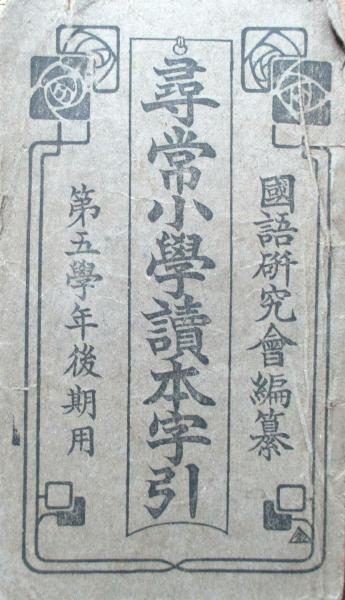 國語硏究會編纂
尋常小學讀本字引
第五學年後期用